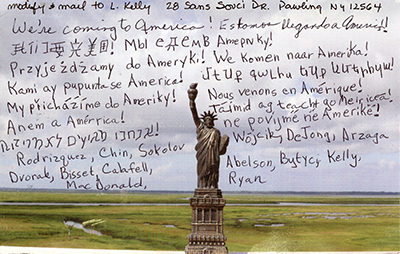 modify & mail to L. Kelly 28 Sans Souci Dr. Pawling NY 12564
We're coming to America! Estamos llegando a America!!
我们 来 美国! Мы едем в Америку!
Przyjeżdżamy do Ameryki! We komen naar Amerika!
Kami ay pupunta sa America! Մենք գալիս ենք
My přicházíme do Ameriky! Nous venons en Amérique!
Anem a Amèrica! Táimid ag teacht go Meiriceá!
ne povijme në Amerikë!
Rodrizquez, Chin, Sokolov Wójcik, DeJong, Arzaga
Dvorak, Bisset, Calafell, Abelson, Bytyci, Kelly,
MacDonald, Ryan